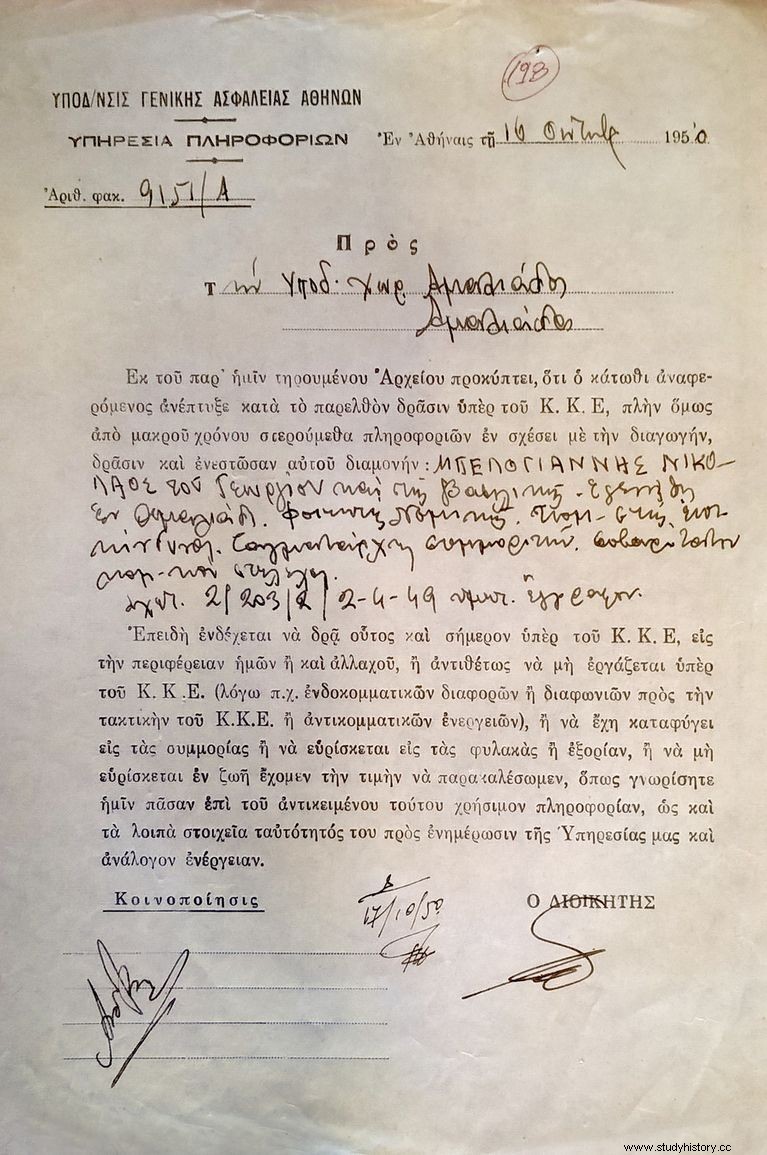 193
ΥΠΟΔ/ΝΣΙΣ ΓΕΝΙΚΗΣ ΑΣΦΑΛΕΙΑΣ ΑΘΗΝΩΝ
ΥΠΗΡΕΣΙΑ ΠΛΗΡΟΦΟΡΙΩΝ
Ἐν Ἀθήναις τῇ 16 1950
Ἀριθ. φακ. 9151/Α
Πρὸς
Τ ὴν Υποδ. χωρ. Αμαλιάδος
Αμαλιάδα
Ἐκ τοῦ παρ' ἡμῖν τηρουμένου Ἀρχείου προκύπτει, ὅτι ὁ κάτωθι ἀναφε-
ρόμενος ἀνέπτυξε κατὰ τὸ παρελθὸν δρᾶσιν ὑπὲρ τοῦ Κ. Κ. Ε, πλὴν ὅμως
ἀπὸ μακροῦ χρόνου στερούμεθα πληροφοριῶν ἐν σχέσει μὲ τὴν διαγωγήν,
δρᾶσιν καὶ ἐνεστῶσαν αὐτοῦ διαμονήν : ΜΠΕΛΟΓΙΑΝΝΗΣ ΝΙΚΟ-
ΛΑΟΣ του Γεωργίου και της Βασιλικής. Εγεννήθη
εν Αμαλιάδι. Φοιτητής Νομικής.
συμμοριτών.
2/203/2/2-4-49 έγγραφον.
Ἐπειδὴ ἐνδέχεται νὰ δρᾷ οὗτος καὶ σήμερον ὑπὲρ τοῦ Κ. Κ. Ε, εἰς
τὴν περιφέρειαν ἡμῶν ἢ καὶ ἀλλαχοῦ, ἢ ἀντιθέτως νὰ μὴ ἐργάζεται ὑπὲρ
τοῦ Κ. Κ. Ε. (λόγω π.χ. ἐνδοκομματικῶν διαφορῶν ἢ διαφωνιῶν πρὸς τὴν
τακτικὴν τοῦ Κ.Κ.Ε. ἢ ἀντικομματικῶν ἐνεργειῶν), ἢ νὰ ἔχη καταφύγει
εἰς τὰς συμμορίας ἢ νὰ εὑρίσκεται εἰς τὰς φυλακὰς ἢ ἐξορίαν, ἢ νὰ μὴ
εὑρίσκεται ἐν ζωῇ ἔχομεν τὴν τιμὴν νὰ παρακαλέσωμεν, ὅπως γνωρίσητε
ἡμῖν πᾶσαν ἐπὶ τοῦ ἀντικειμένου τούτου χρήσιμον πληροφορίαν, ὡς καὶ
τὰ λοιπὰ στοιχεῖα ταὐτότητός του πρὸς ἐνημέρωσιν τῆς Ὑπηρεσίας μας καὶ
ἀνάλογον ἐνέργειαν.
Κοινοποίησις
17/10/50
Ο ΔΙΟΙΚΗΤΗΣ
www.studyhistory.cc